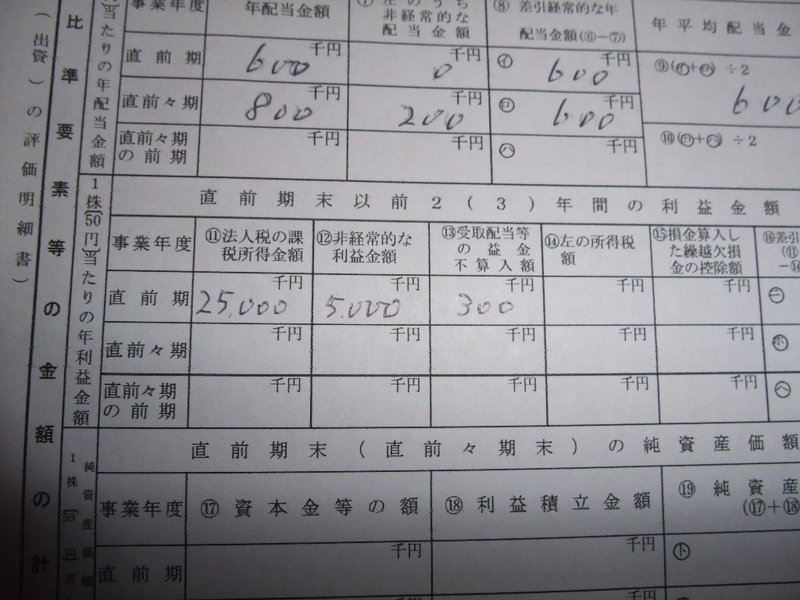 比準要素等の金額の計
（出資）の評価明細書）
当たりの年配当金額
事業年度
年配当金額
⑦左のうち
非経常的な
配当金額
⑧ 差引経常的な年
配当金額(⑥−⑦)
年平均配当金
直前期
千円
600
千円
0
㋑
千円
600
⑨(㋑+㋺)÷2
600
直前々期
千円
800
千円
200
㋺
千円
600
直前々期
の前期
千円
千円
㋩
千円
⑩(㋺+㋩)÷2
1株(50円)当たりの年利益金額
直前期末以前2(3)年間の利益金額
事業年度
⑪法人税の課
税所得金額
⑫非経常的な
利益金額
⑬受取配当等
の益金
不算入額
⑭左の所得税
額
⑮損金算入し
た繰越欠損
金の控除額
⑯差引
(⑪
−⑭
直前期
千円
25,000
千円
5,000
千円
300
千円
千円
㊁
直前々期
千円
千円
千円
千円
千円
㋭
直前々期
の前期
千円
千円
千円
千円
千円
㋬
1株(50円)
純資産価額
直前期末（直前々期末）の純資産価額
事業年度
⑰ 資本金等の額
⑱ 利益積立金額
⑲ 純資産
(⑰+⑱
直前期
千円
千円
㋣
千円
千円